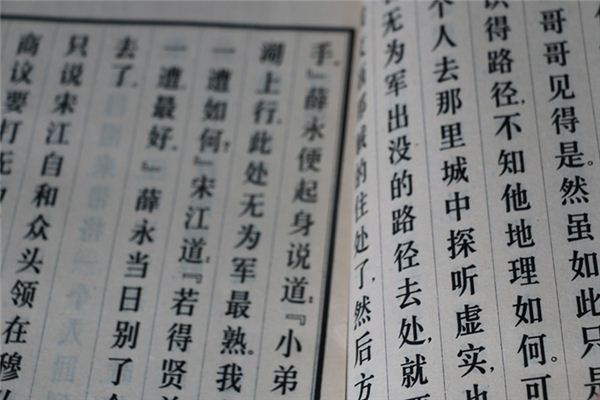 哥哥见得是。然虽如此只是
得路径,不知他地理如何。可
个人去那里城中探听虚实,
无为军出没的路径去处,就
的住处了,然后方
手。』薛永便起身说道:『小弟
湖上行,此处无为军最熟。我
一遭如何?』宋江道:『若得贤
一遭最好。』薛永当日别了
去了。
只说宋江自和众头领在穆
商议要打无